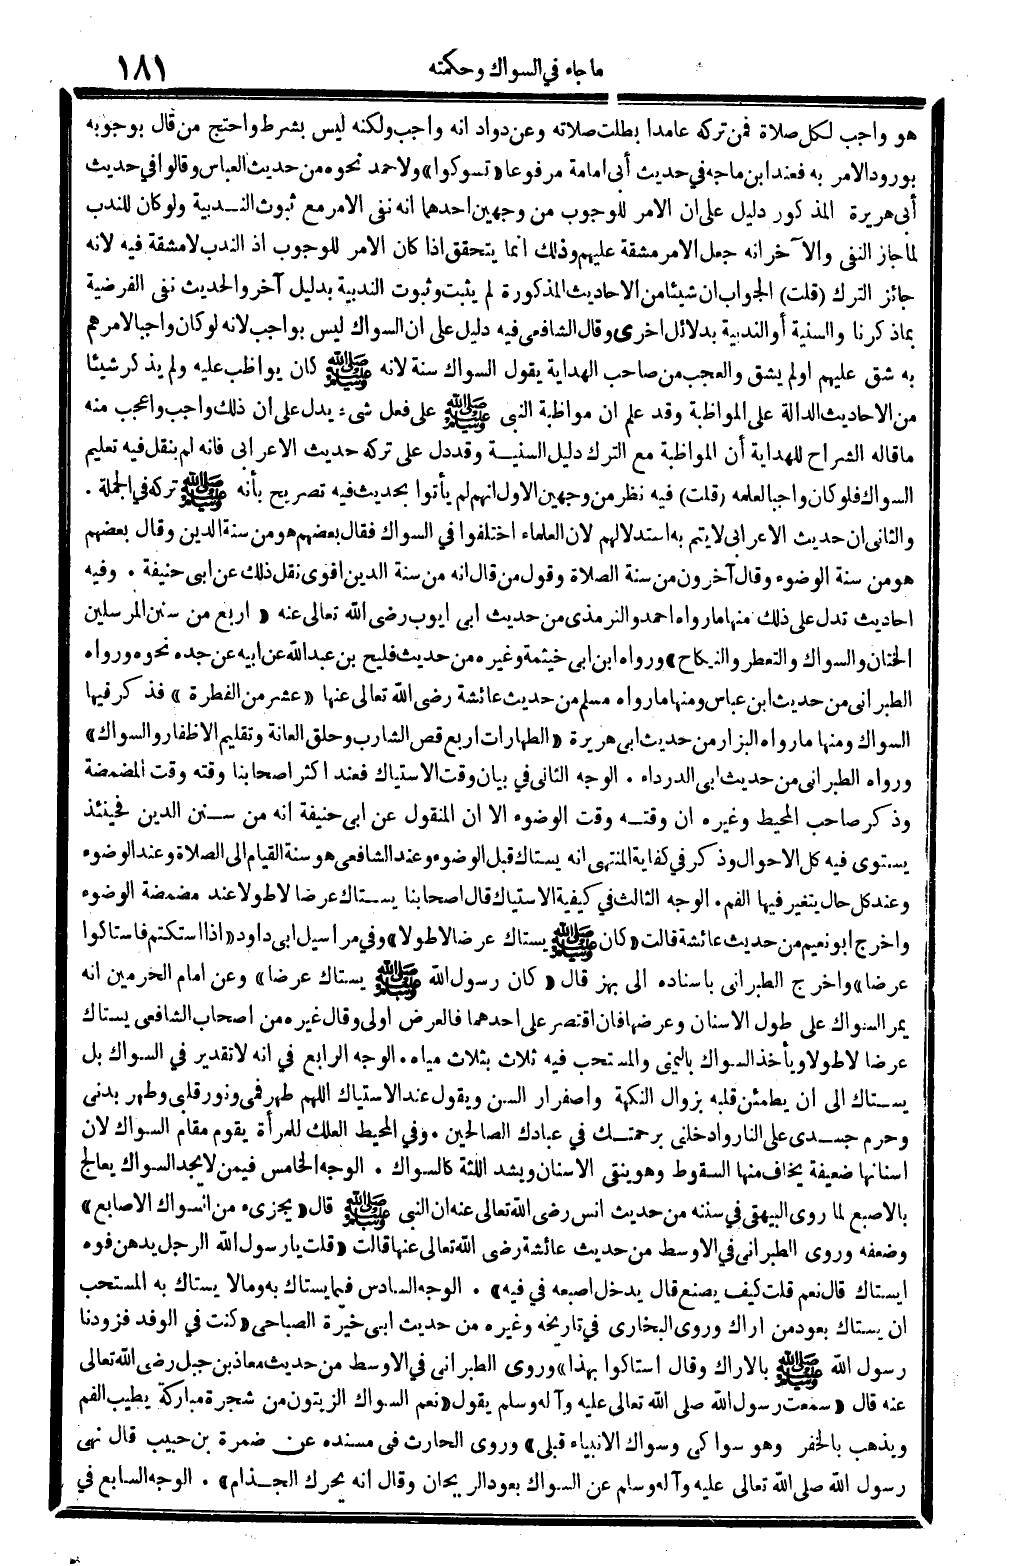 ما جاء في السواك وحكمته
١٨١
هو واجب لكل صلاة فمن تركه عامدا بطلت صلاته وعن دواد انه واجب ولكنه ليس بشرط واحتج من قال بوجوبه
بورود الامر به فعند ابن ماجه في حديث أبى امامة مرفوعا «تسوكوا» ولاحمد نحوه من حديث العباس وقالوا في حديث
أبى هريرة المذكور دليل على ان الامر للوجوب من وجهين احدهما انه نفى الامر مع ثبوت الندبية ولو كان للندب
لما جاز النفى والآخر انه جعل الامر مشقة عليهم وذلك انما يتحقق اذا كان الامر للوجوب اذ الندب لا مشقة فيه لانه
جائز الترك (قلت) الجواب ان شيئا من الاحاديث المذكورة لم يثبت وثبوت الندبية بدليل آخر والحديث نفى الفرضية
بماذكرنا والسنية أو الندبية بدلائل اخرى وقال الشافعى فيه دليل على ان السواك ليس بواجب لانه لو كان واجبا لامرهم
به شق عليهم اولم يشق والعجب من صاحب الهداية يقول السواك سنة لانه ﷺ كان يواظب عليه ولم يذكر شيئا
من الاحاديث الدالة على المواظبة وقد علم ان مواظبة النبى ﷺ على فعل شىء يدل على ان ذلك واجب واعجب منه
ماقاله الشراح للهداية أن المواظبة مع الترك دليل السنية وقد دل على تركه حديث الاعرابى فانه لم ينقل فيه تعليم
السواك فلو كان واجبا لعلمه (قلت) فيه نظر من وجهين الاول انهم لم يأتوا بحديث فيه تصريح بأنه ﷺ تركه في الجملة .
والثانى ان حديث الاعرابى لايتم به استدلالهم لان العلماء اختلفوا في السواك فقال بعضهم هو من سنة الدين وقال بعضهم
هو من سنة الوضوء وقال آخرون من سنة الصلاة وقول من قال انه من سنة الدين اقوى نقل ذلك عن ابى حنيفة . وفيه
احاديث تدل على ذلك منها ما رواه احمد والترمذى من حديث ابى ايوب رضى الله تعالى عنه « اربع من سنن المرسلين
الختان والسواك والتعطر والنكاح» ورواه ابن ابى خيثمة وغيره من حديث فليح بن عبد الله عن ابيه عن جده نحوه ورواه
الطبرانى من حديث ابن عباس ومنها ما رواه مسلم من حديث عائشة رضى الله تعالى عنها «عشر من الفطرة » فذكر فيها
السواك ومنها ما رواه البزار من حديث ابى هريرة «الطهارات اربع قص الشارب وحلق العانة وتقليم الاظفار والسواك»
ورواه الطبرانى من حديث ابى الدرداء . الوجه الثانى في بيان وقت الاستياك فعند اكثر اصحابنا وقته وقت المضمضة
وذكر صاحب المحيط وغيره ان وقته وقت الوضوء الا ان المنقول عن ابى حنيفة انه من سنن الدين فحينئذ
يستوى فيه كل الاحوال وذكر في كفاية المنتهى انه يستاك قبل الوضوء وعند الشافعى هو سنة القيام الى الصلاة وعند الوضوء
وعند كل حال يتغير فيها الفم. الوجه الثالث في كيفية الاستياك قال اصحابنا يستاك عرضا لا طولا عند مضمضة الوضوء
واخرج ابو نعيم من حديث عائشة قالت «كان ﷺ يستاك عرضا لاطولا» وفي مراسيل ابى داود «اذا استكتم فاستاكوا
عرضا» واخرج الطبرانى باسناده الى بهز قال « كان رسول الله ﷺ يستاك عرضا» وعن امام الحرمين انه
يمر السواك على طول الاسنان وعرضها فان اقتصر على احدهما فالعرض اولى وقال غيره من اصحاب الشافعى يستاك
عرضا لا طولا ويأخذ السواك باليمنى والمستحب فيه ثلاث بثلاث مياه. الوجه الرابع في انه لا تقدير في السواك بل
يستاك الى ان يطمئن قلبه بزوال النكهة واصفرار السن ويقول عند الاستياك اللهم طهر فمى ونور قلبى وطهر بدنى
وحرم جسدى على النار وادخلنى برحمتك في عبادك الصالحين . وفي المحيط العلك للمرأة يقوم مقام السواك لان
اسنانها ضعيفة يخاف منها السقوط وهو ينقى الاسنان ويشد اللثة كالسواك . الوجه الخامس فيمن لا يجد السواك يعالج
بالاصبع لما روى البيهقى في سننه من حديث انس رضى الله تعالى عنه ان النبى ﷺ قال «يجزىء من السواك الاصابع»
وضعفه وروى الطبرانى في الاوسط من حديث عائشة رضى الله تعالى عنها قالت «قلت يا رسول الله الرجل يدهن فوه
ايستاك قال نعم قلت كيف يصنع قال يدخل اصبعه في فيه» . الوجه السادس فيما يستاك به وما لا يستاك به المستحب
ان يستاك بعود من اراك وروى البخارى في تاريخه وغيره من حديث ابى خيرة الصباحى «كنت في الوفد فزودنا
رسول الله ﷺ بالاراك وقال استاكوا بهذا» وروى الطبرانى في الاوسط من حديث معاذ بن جبل رضى الله تعالى
عنه قال « سمعت رسول الله صلى الله تعالى عليه وآله وسلم يقول «نعم السواك الزيتون من شجرة مباركة يطيب الفم
ويذهب بالحفر وهو سواكى وسواك الانبياء قبلى» وروى الحارث فى مسنده عن ضمرة بن حبيب قال نهى
رسول الله صلى الله تعالى عليه وآله وسلم عن السواك بعود الريحان وقال انه يحرك الجذام» . الوجه السابع في